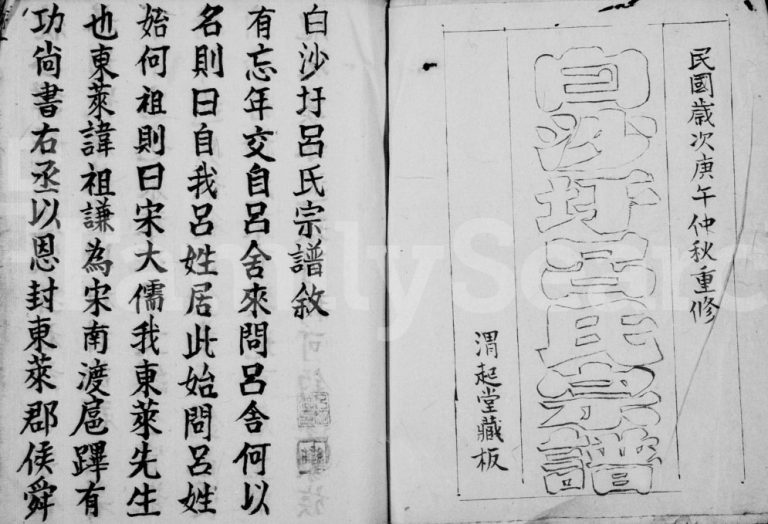 民國歲次庚午仲秋重修
白沙圩呂氏宗譜
渭起堂藏板
白沙圩呂氏宗譜敘
有忘年交自呂舍來問呂舍何以
名則曰自我呂姓居此始問呂姓
始何祖則曰宋大儒我東萊先生
也東萊諱祖謙為宋南渡扈蹕有
功尚書右丞以恩封東萊郡侯舜
FamilySearc